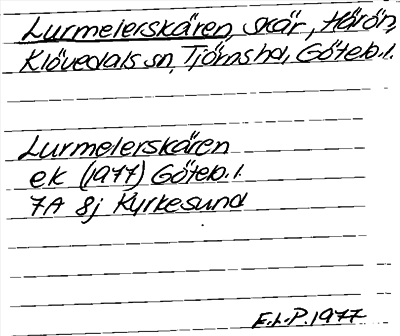 Lurmelerskären, skär, Härön,
Klövedals sn, Tjörns hd, Göteb. l.
Lurmelerskären
ek (1977) Göteb. l.
7A 8j Kyrkesund
E.L.P. 1977